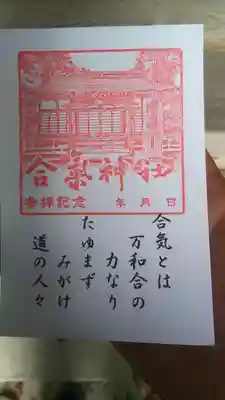 合氣神社
参拝記念 年 月 日
合気とは
万和合の
力なり
たゆまず
みがけ
道の人々